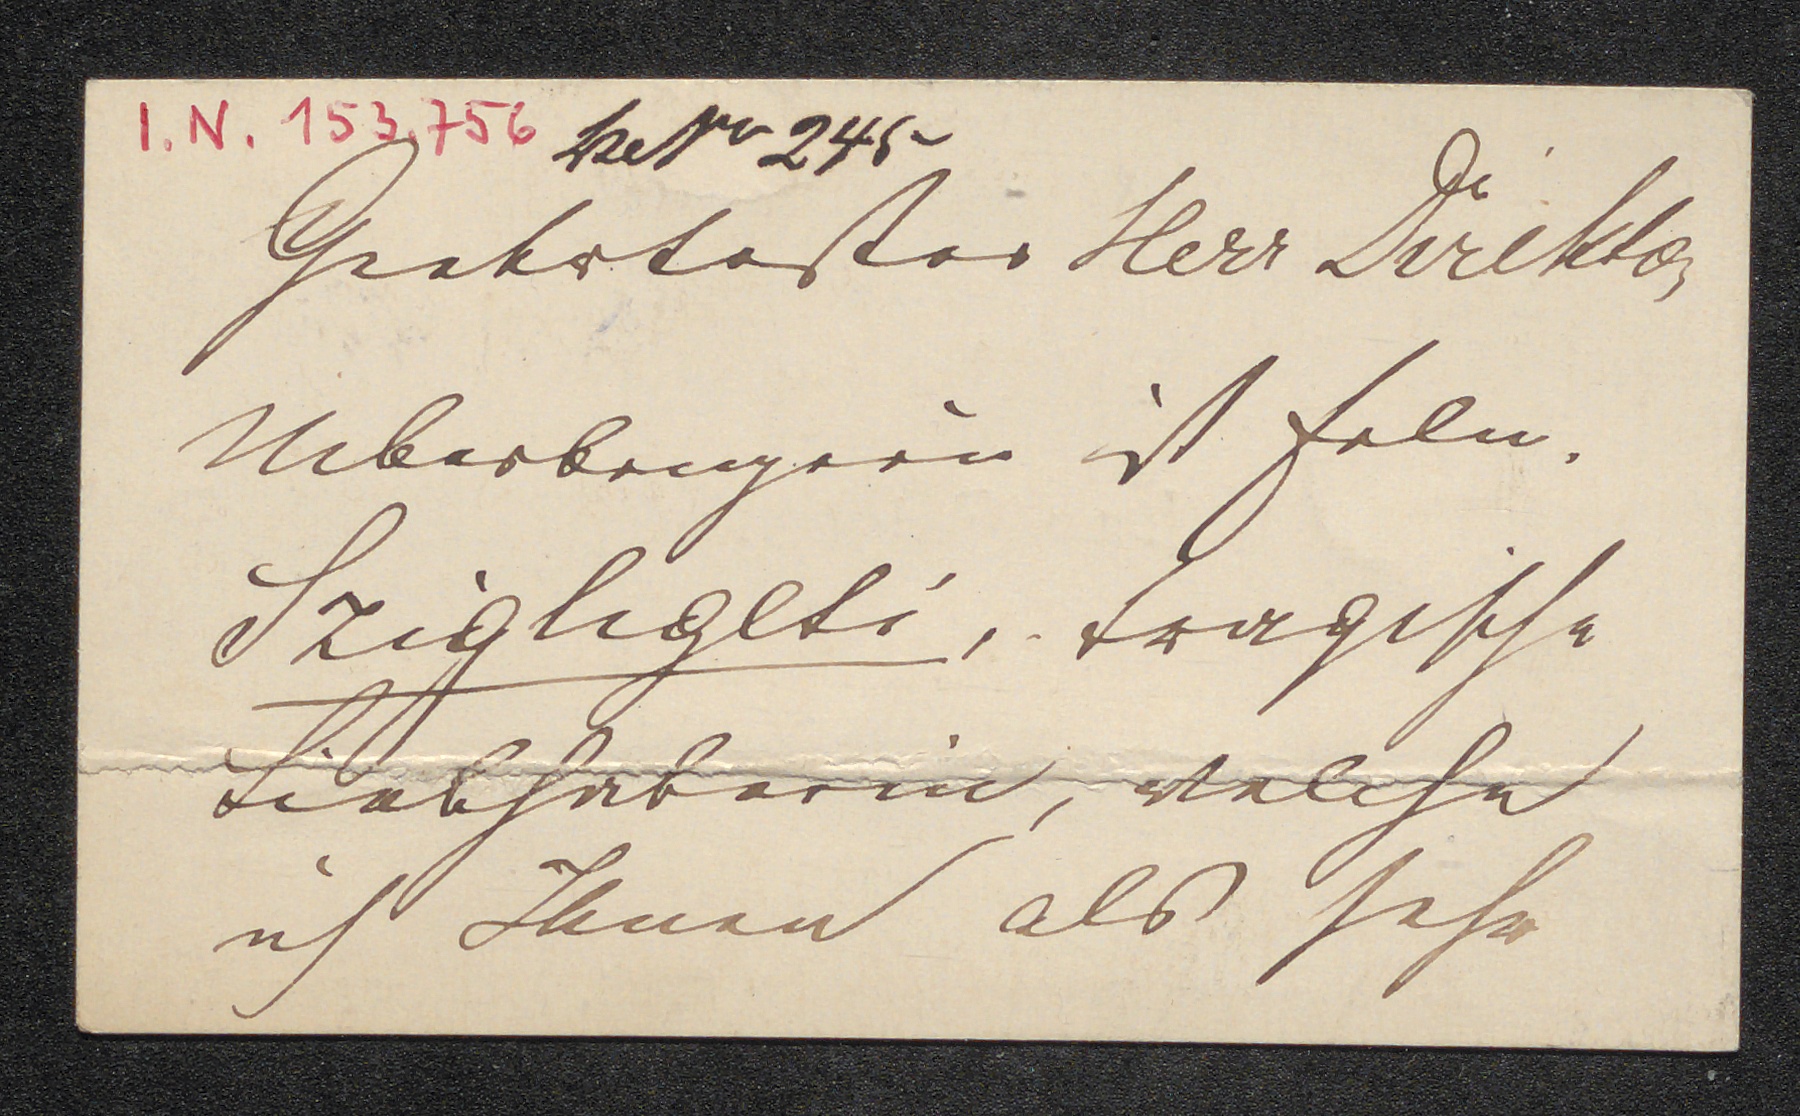 I.N. 153.756 245
Geehrtester Herr Direktor
Ueberbringerin ist Frln.
Szigligeti, tragische
Liebhaberin, welche
ich Ihnen als sehr